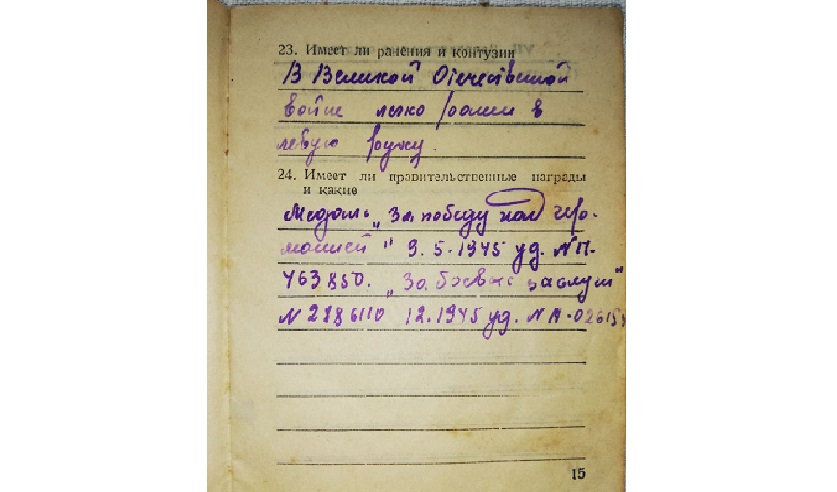 23. Имеет ли ранения и контузии
В Великой Отечествиной
войне легко ранен в
левую руку.
24. Имеет ли правительственные награды
и какие
Медаль „За победу над гер-
манией" 9.5.1945 уд. №П-
463850. „За боевые заслуги"
N 2286110 12.1945 уд. N А-
15